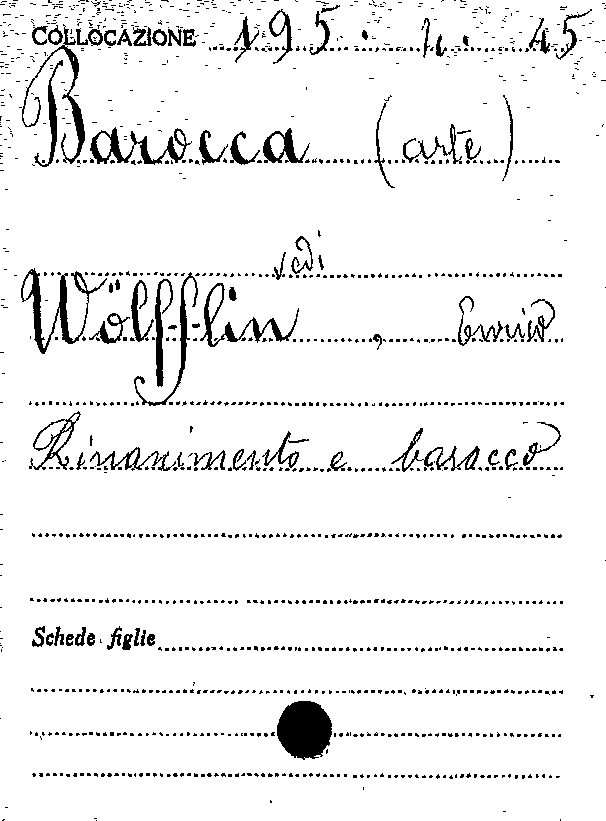 COLLOCAZIONE 195. h. 45
Barocca (arte)
vedi
Wölfflin, Enrico
Rinanimento e barocco
Schede figlie